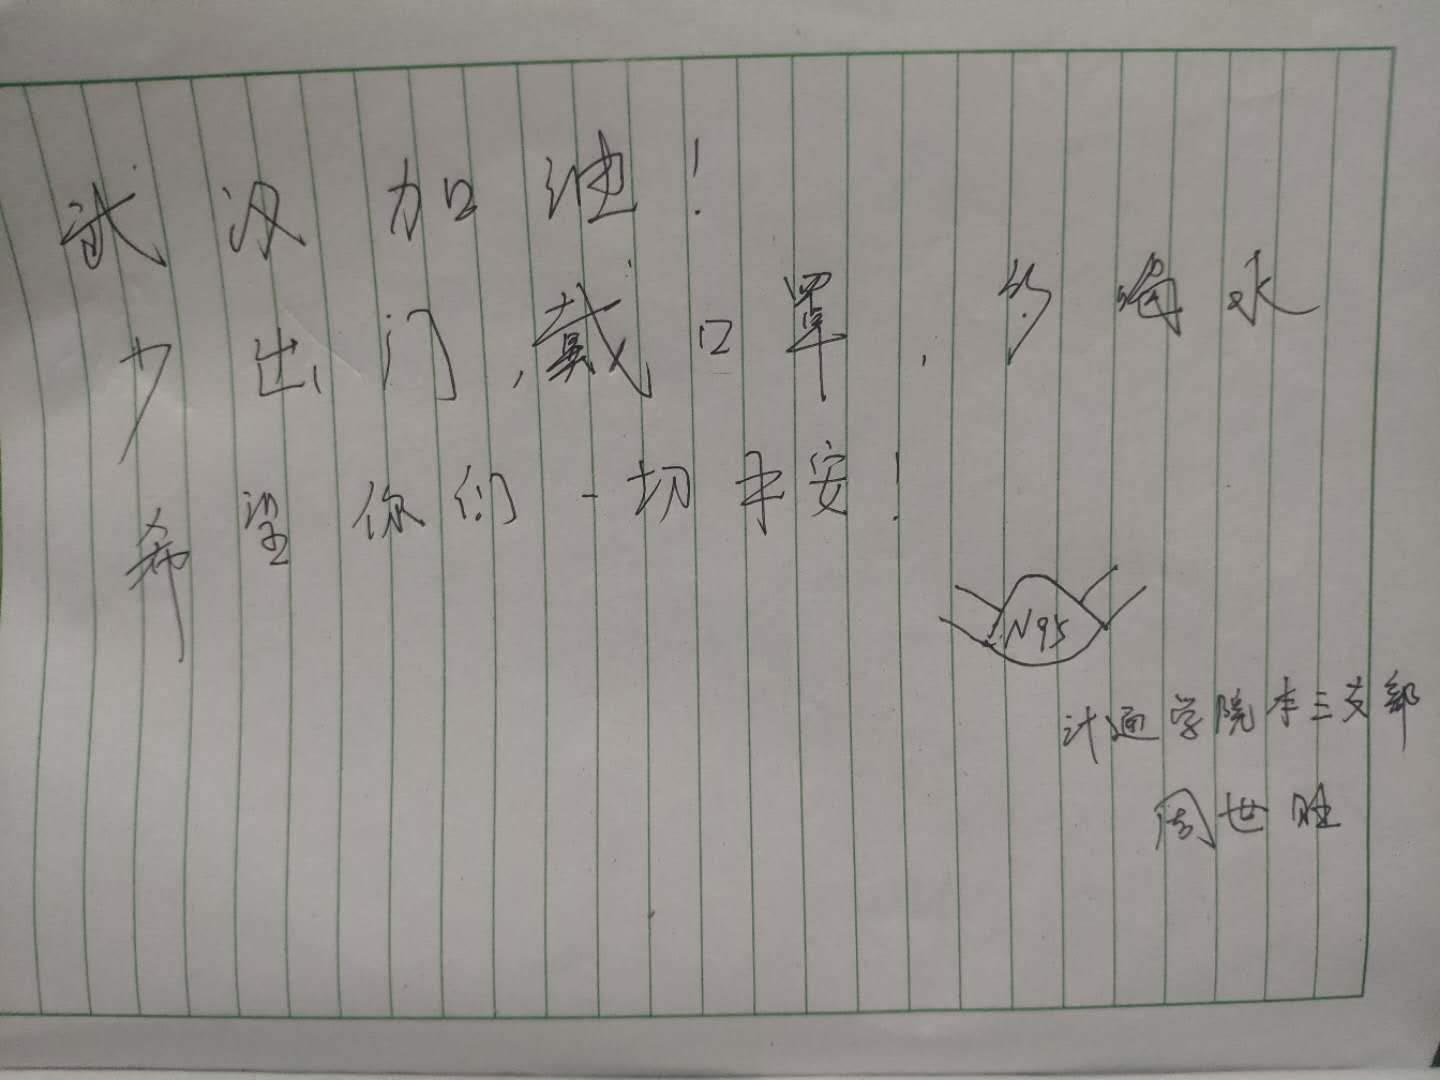 武汉加油!
少出门,戴口罩,多喝水
希望你们一切平安!
N95
计通学院本三支部
周世胜